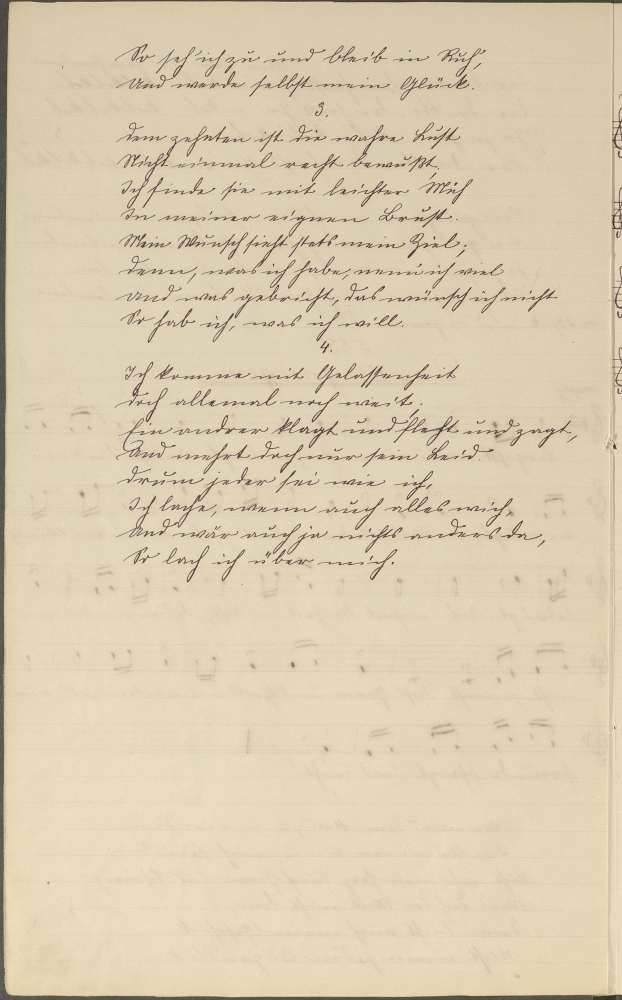 So seh' ich zu und bleib in Ruh',
Und werde selbst mein Glück.
3.
Dem zehnten ist die wahre Lust
Nicht einmal recht bewußt,
Ich finde sie mit leichter Müh
In meiner eignen Brust.
Mein Wunsch sieht stets mein Ziel;
Denn, was ich habe, nenn ich viel
und was gebricht, das wünsch ich nicht
So hab ich, was ich will.
4.
Ich komme mit Gelassenheit
doch allemal noch weit,
Ein andrer klagt und fleht und zagt,
Und mehrt doch nur sein Leid.
drum jeder sei wie ich,
Ich lache, wenn auch alles wich,
Und wär auch ja nichts anders da,
So lach ich über mich.